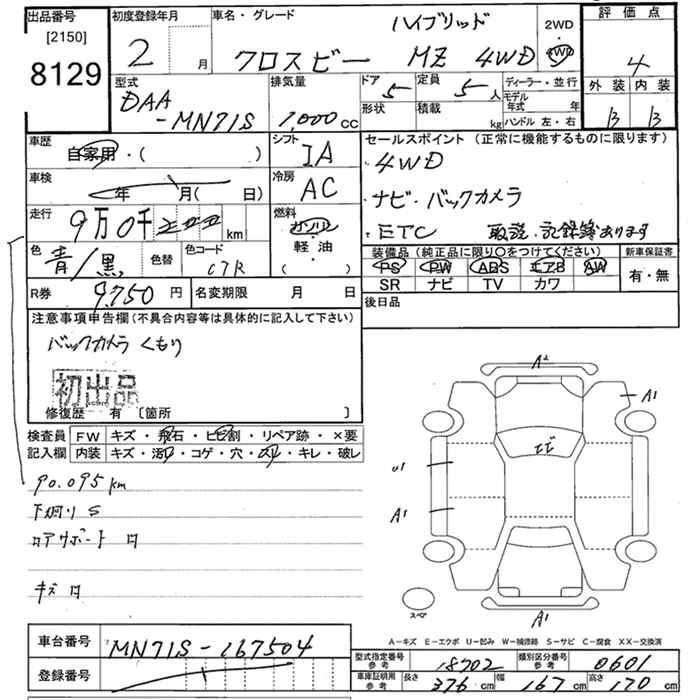 出品番号
[2150]
8129
初度登録年月
2 月
車名・グレード
ハイブリッド
クロスビー MZ 4WD
2WD
・
4WD
評価点
4
外装 内装
B B
型式
DAA
-MN71S
排気量
1,000 cc
ドア 5
定員 5 人
形状
積載 kg
ディーラー・並行
モデル年式 年
ハンドル 左・右
車歴
自家用・( )
シフト
IA
車検
年 月( 日)
冷房
AC
走行
9万0千 km
燃料
ガソリン
軽油
( )
色
青/黒
色替
色コード
C7R
R券 9,750 円
名変期限 月 日
セールスポイント (正常に機能するものに限ります)
4WD
ナビ・バックカメラ
ETC 取説・記録簿あります
装備品(純正品に限り○をつけてください)
PS PW ABS エアB AW
SR ナビ TV カワ
新車保証書
有・無
後日品
注意事項申告欄(不具合内容等は具体的に記入して下さい)
バックカメラ くもり
初出品
修復歴 有 〔箇所 〕
検査員
記入欄
FW キズ・飛石・ヒビ割・リペア跡・×要
内装 キズ・汚・コゲ・穴・スレ・キレ・破レ
90.095km
下廻りS
ロアサポート ロ
キズ ロ
A2
A1
エピ
U1
A1
スペア
A1
A-キズ E-エクボ U-凹み W-補修跡 S-サビ C-腐食 XX-交換済
車台番号 MN71S-167504
登録番号
型式指定番号
参考
18702
類別区分番号
参考
0601
車庫証明用
参考
長さ 376 cm 幅 167 cm 高さ 170 cm